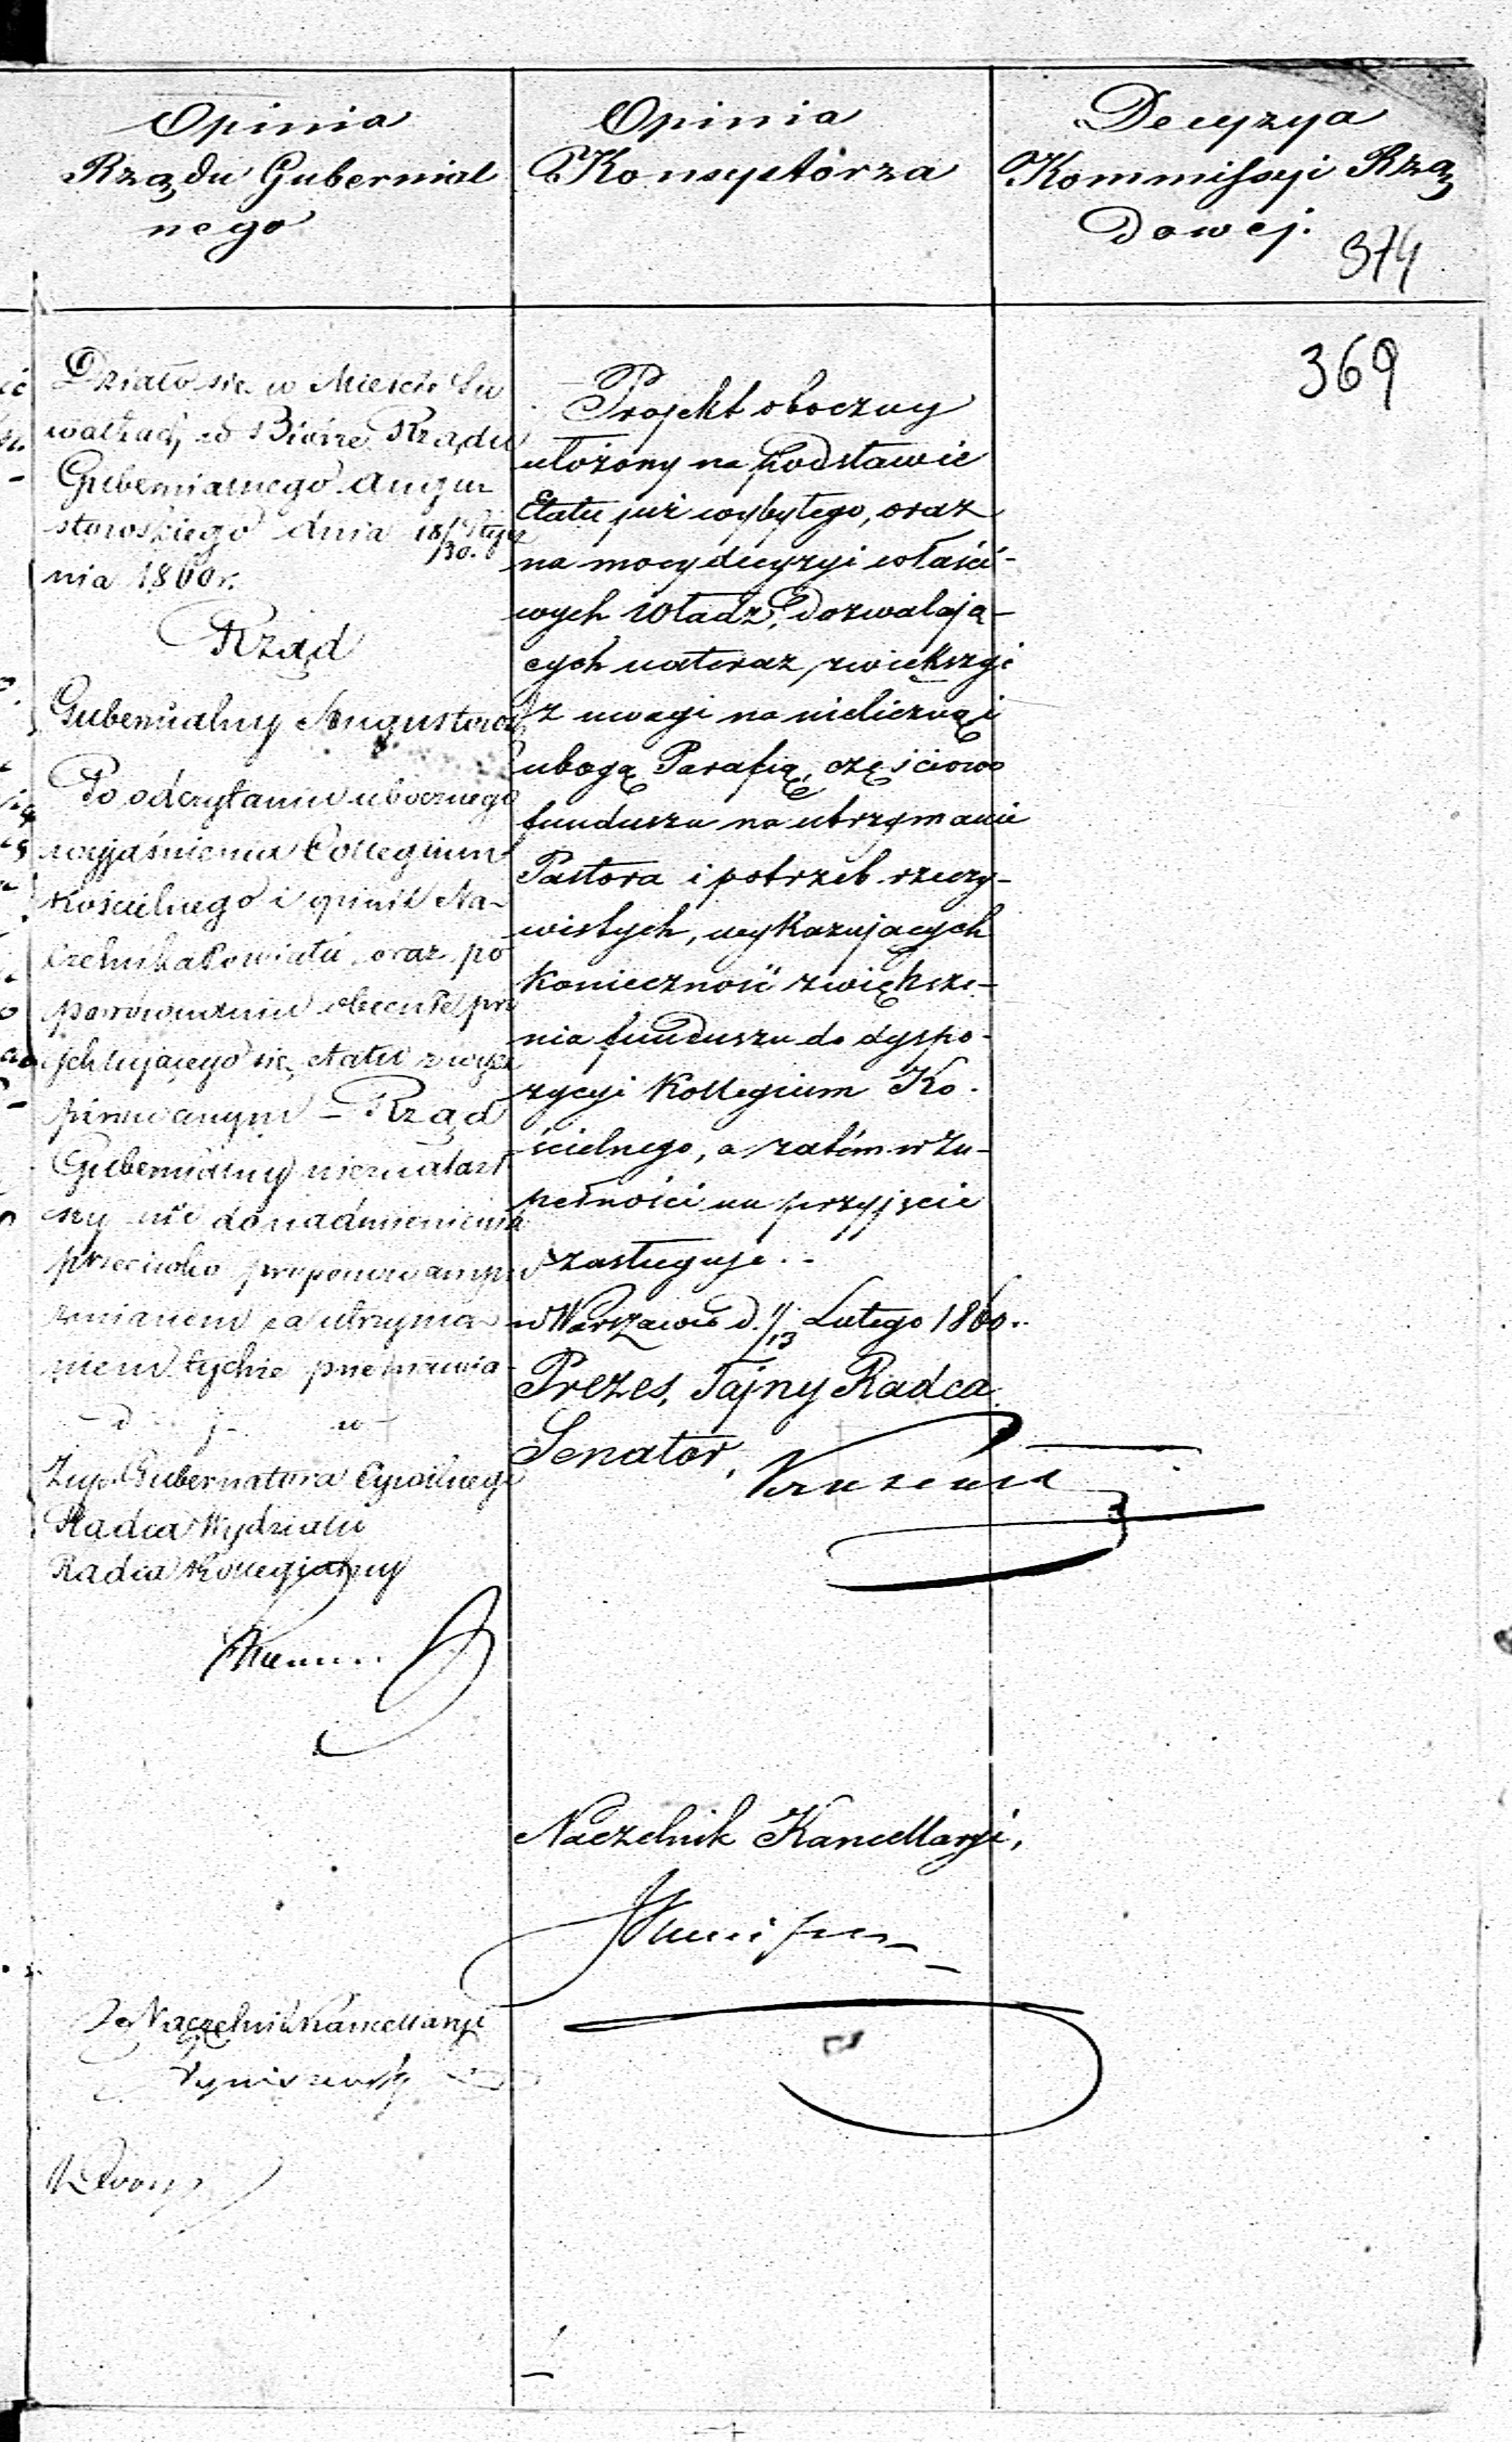 Opinia
Rządu Gubernial
nego
Opinia
Konsystorza
Decyzya
Kommissyi Rzą
dowej.
374
369
Działo się w Mieście Su
wałkach w Biórze Rządu
Gubernialnego Augu
stowskiego dnia 18/30 Stycz
nia 1860 r.
Rząd
Gubernialny Augustowski
Po odczytaniu ubocznego
wyjaśnienia Collegium
Kościelnego i opinii Na-
czelnika Powiatu, oraz po
porównaniu obecnie pro
jektującego się etatu z
Rząd
Gubernialny nieznalazł
szy nic do nadmienienia
przeciwko proponowanym
zmianom za utrzyma
niem tychże przemawia
Zup. Gubernatora Cywilnego
Radca Wydziału
Radca Kollegialny
Naczelnik Kancellaryi
Projekt oboczny
ułożony na podstawie
Etatu już wybyłego, oraz
na mocy decyzyi właści-
wych Władz, dozwalają-
cych na teraz, zwiększyć
z uwagi na nieliczną i
ubogą Parafię, częściowo
funduszu na utrzymanie
Pastora i potrzeb rzeczy-
wistych, wykazujących
konieczność zwiększe-
nia funduszu do dyspo-
zycyi Kollegium Ko-
ścielnego, a zatém w zu-
pełności na przyjęcie
zasługuje.-
w Warszawie d. 1/13 Lutego 1860.
Prezes, Tajny Radca
Senator,
Naczelnik Kancellaryi,